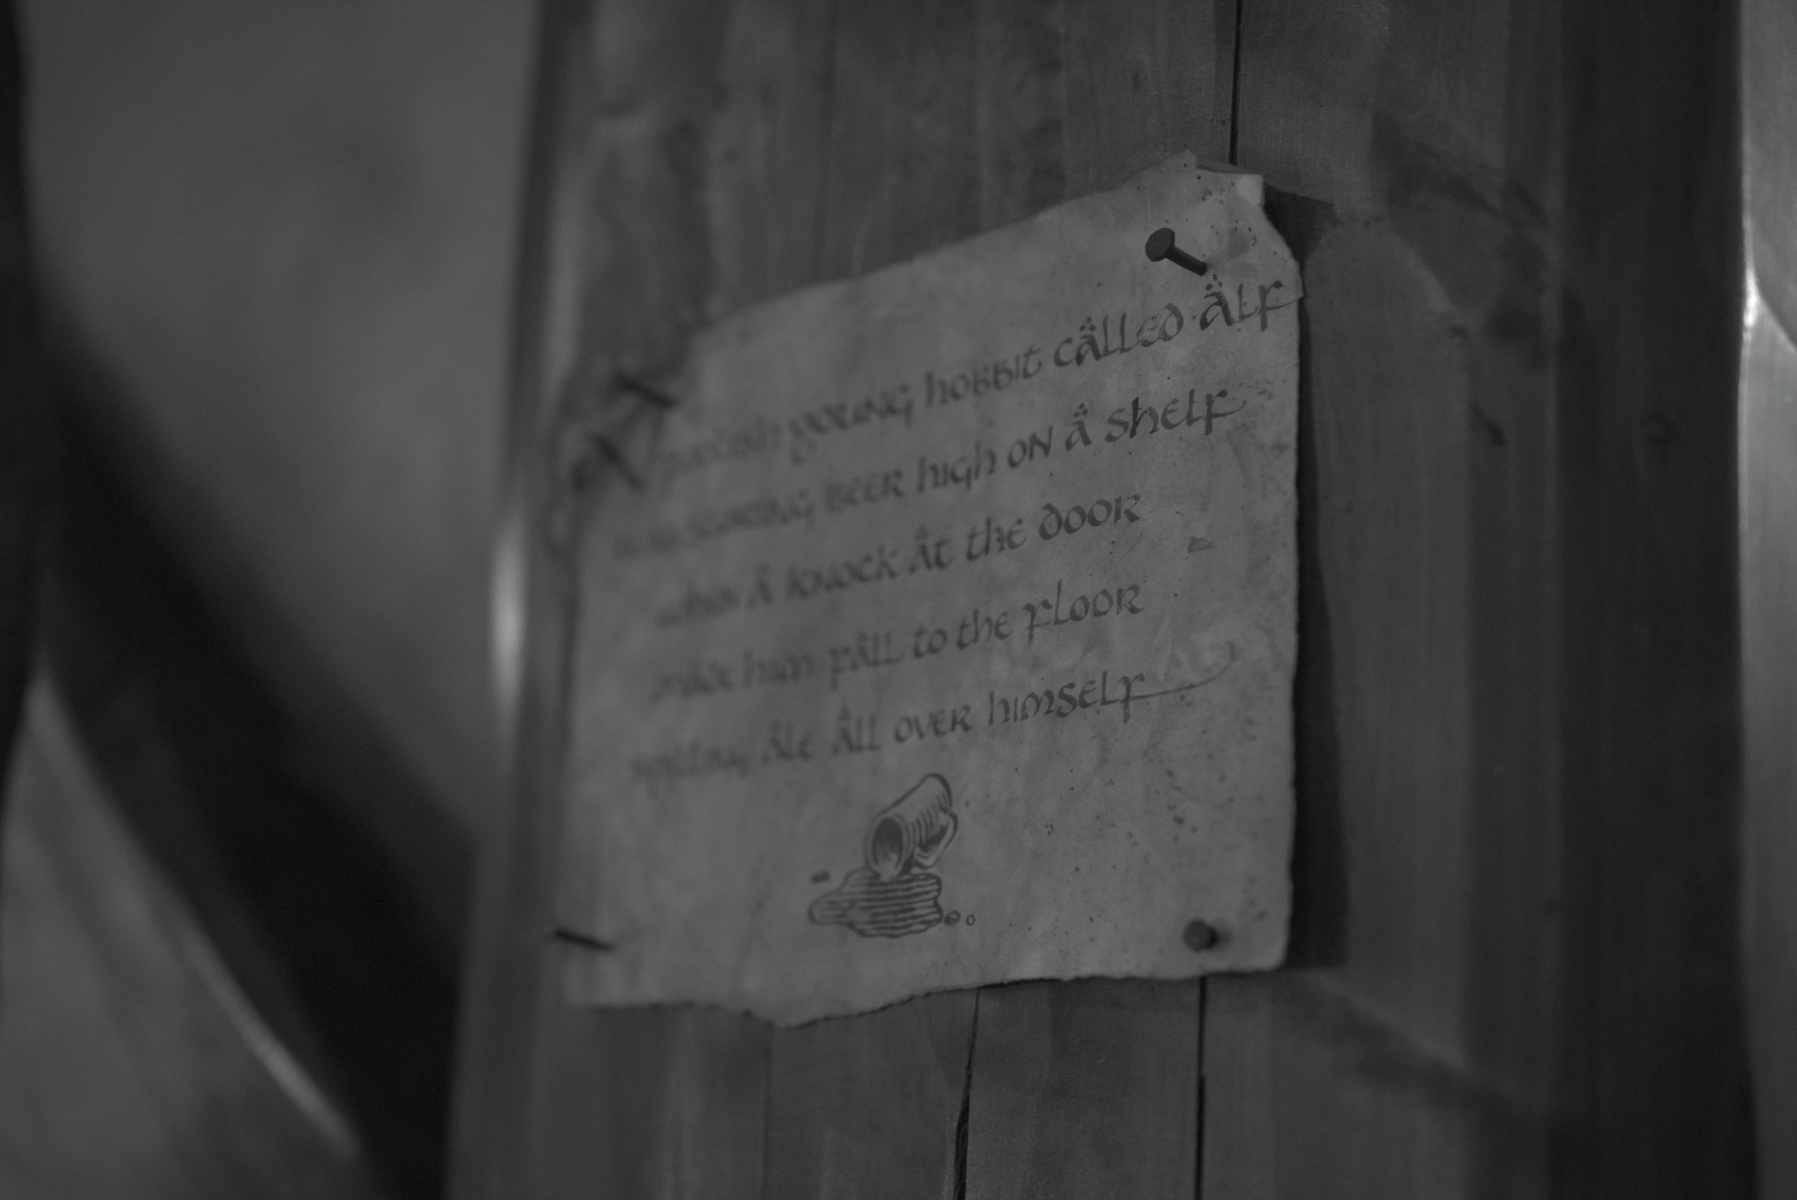 young hobbit called Alf
beer high on a shelf
when a knock at the door
made him fall to the floor
spilling ale all over himself